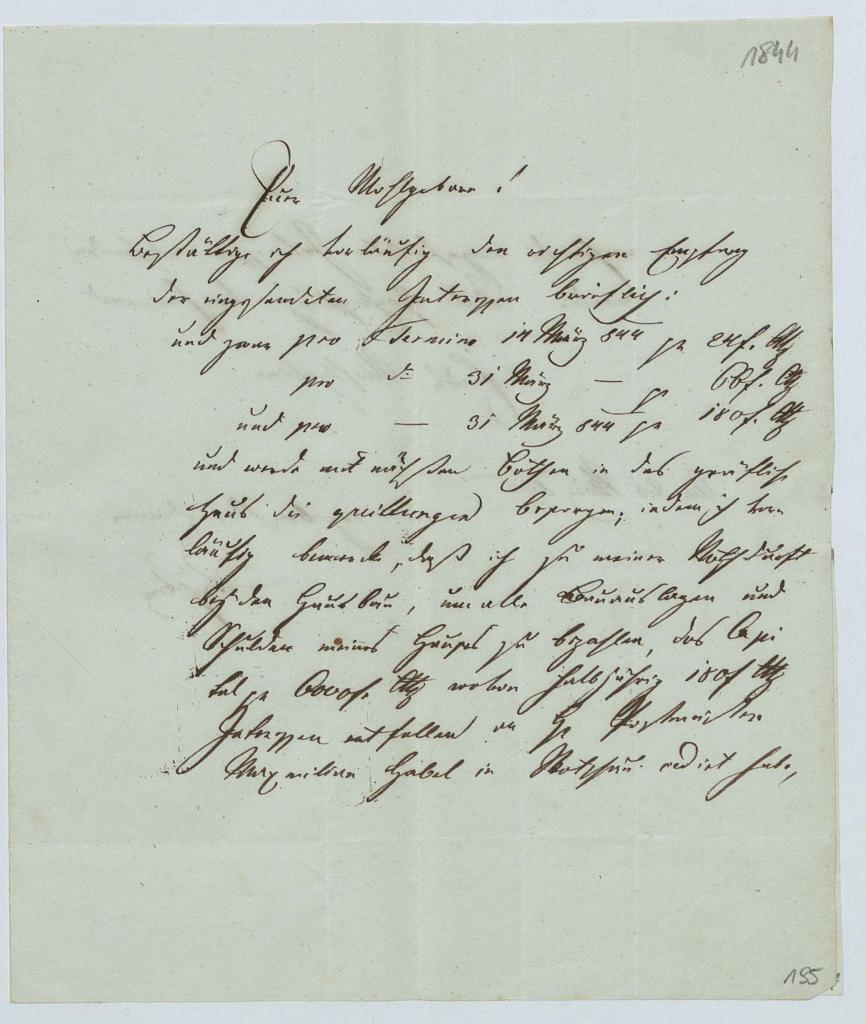 1844
Euer Wohlgeboren!
Bestättige ich vorläufig den richtigen Empfang
der eingesendeten Interessen berüflich:
und zwar pro Termino 14 März 844 pr 24f. CMz
pro dto 31 März — pr 66f. CMz
und pro — 31 März 844 pr 180f. CMz
und werde mit nächsten Bothen in das gräfliche
Haus die quittungen besorgen; indem ich vor-
läufig bemerke, daß ich zu meiner Nothdurft
bey den Hausbau, um alle Bauauslagen und
Schulden meines Hauses zu bezahlen, das Capi
tal pr 6000f. CMz wovon halbjährig 180f CMz
Interessen entfallen an H. Postmeister
Maximilian Gabel in Skotschau cedirt habe,
195